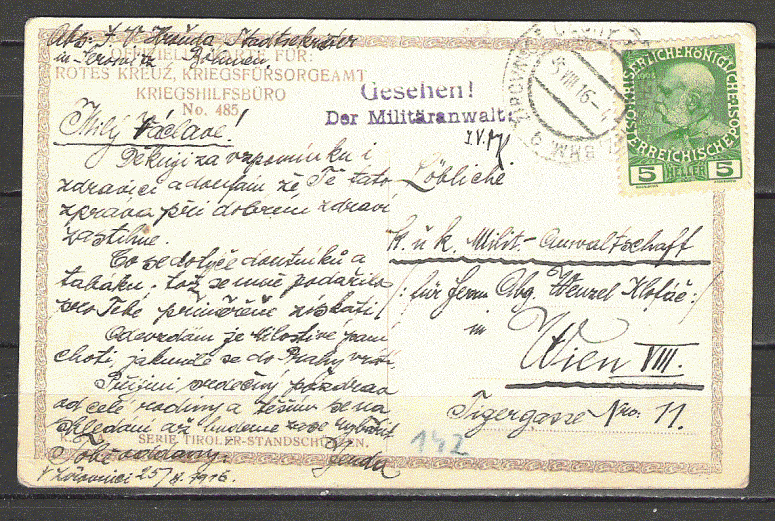 Abs: F. V. Hruda Stadtsekretär
in Serowitz Böhmen.
OFFIZIELLE KARTE FÜR:
ROTES KREUZ, KRIEGSFÜRSORGEAMT
KRIEGSHILFSBÜRO
No. 485
Gesehen!
Der Militäranwalt
I.V.
5 VIII 16
KAISERLICHE KÖNIGLICHE
ÖSTERREICHISCHE
5 HELLER 5
Milý Václave!
Děkuji za vzpomínku i
zdravici a doufám že Tě tato
zpráva při dobrém zdraví
zastihne.
Co se dotýče doutníků a
tabáku, tož se mně podařilo
pro Tebe přiměřeně získati
Odevzdám je Milostivé paní
choti, jakmile se do Prahy
Přijmi srdečný pozdrav
od celé rodiny a těším se na
shledání až budeme zase
SERIE TIROLER-STANDSCHÜTZEN.
Tvůj oddaný
Jenda
V Žirovnici 25/ 1916
Löbliche
K. u k. Milit.-Anwaltschaft
/: für Herrn Abg. Wenzel Klofáč :/
in
Wien VIII.
Tigergasse Nro. 11.
142